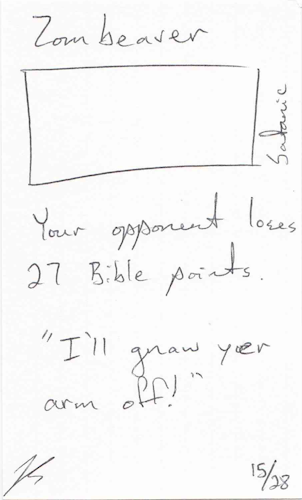 Zombeaver
Satanic
Your opponent loses
27 Bible points.
"I'll gnaw yer
arm off!"
15/28